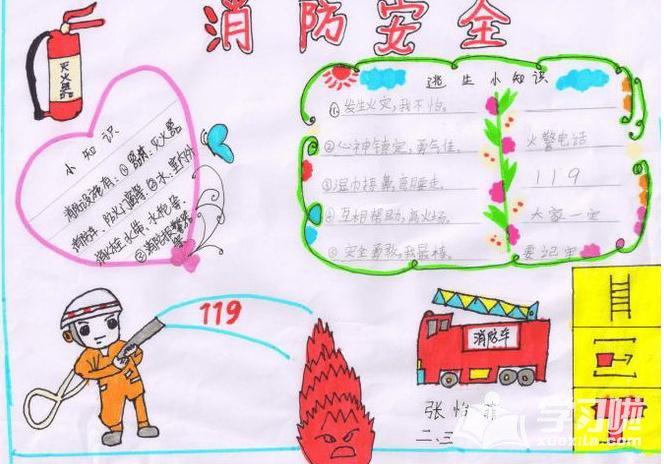 消防安全
灭火器
小知识
消防设施有：①器材、灭火器
消防车、防火门窗等。②水：室内外
消火栓、水伟、水枪等。
逃生小知识
①发生火灾，我不怕。
②心神镇定，勇气佳。
③湿巾掩鼻，弯腰走。
④互相帮助，离火场。
⑤安全勇敢，我最棒。
火警电话
119
大家一定
要记牢
119
消防车
张怡
二、三
学习啦
xuexila.com